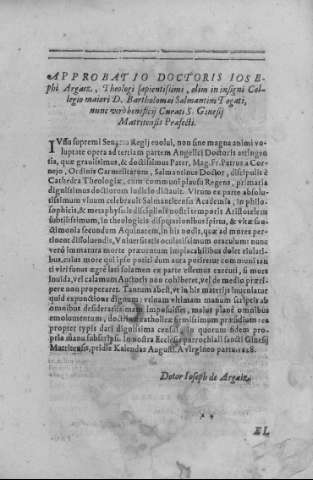 APPROBATIO DOCTORIS IOSE-
phi Argaiz, Theologi sapientissimi, olim in insigni Col-
legio maiori D. Bartholomæi Salmantini Togati,
nunc verò beneficij Curati S. Ginesij
Matritensis Præfecti.
IVssu supremi Senatus Regij euolui, non sine magna animi vo-
luptate opera ad tertiam partem Angelici Doctoris attingen
tia, quæ grauissimus, & doctissimus Pater, Mag. Fr. Petrus a Cor-
nejo, Ordinis Carmelitarum, Salmantinus Doctor, discipulis è
Cathedra Theologiæ, cum communi plausu Regens, primaria
dignissimus doctorum iudicio dictauit. Virum ex parte absolu-
tissimum vnum celebrat Salmanticensis Academia, in philo-
sophicis, & metaphysicis disciplinis nostri temporis Aristotelem
subtilissimum, in theologicis disputationibus spirta, & vitæ san-
ctimonia secundum Aquinatem, in his nodis, quæ ad mores per-
tinent dissoluendis, Vniuersitatis oculatissimum oraculum: nunc
verò immatura morte præuentum implacabilibus dolet
cuius more qui ipso potiti dum
ti viri funus ægrè lari solamen ex parte essemus executi, si mors
inuida, vel calamum Auctoris non cohiberet, vel de medio præri-
pere non properaret. Tantum abest, vt in his materijs inueniatur
quid expunctione dignum: vtinam vtinam manum scripsis ab
omnibus desideratis impossisset, maius planè omnibus
emolumentum, doctrinæ catholicæ firmissimum præsidium
propter typis dari dignissima censui, quorum fidem pro-
pria manu subscripsi. In nostra Ecclesia parrochiali sancti Ginesij
Matritensis, pridie Kalendas Augusti. A virgineo partu 1628.
Dotor Ioseph de Argaiz.
EL